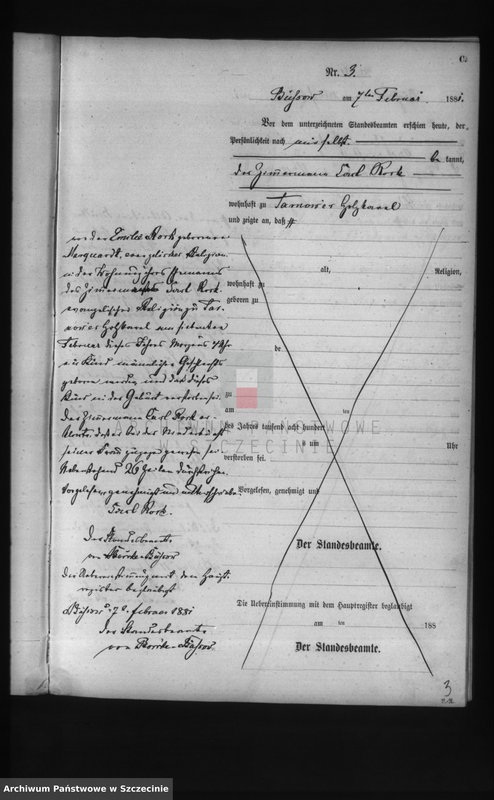 C.
Nr. 3.
Büssow am 7ten Februar 1881.
Vor dem unterzeichneten Standesbeamten erschien heute, der
Persönlichkeit nach
be kannt,
der Zimmermann Carl Rork
wohnhaft zu Tarnow'er Holzkavel
und zeigte an, daß
von der Emilie Rork geborenen
Marquardt, evangelischer Religion
in der Wohnung ihres Ehemanns
des Zimmermanns Carl Rork
evangelischer Religion zu Tar-
now'er Holzkavel am siebenten
Februar dieses Jahres Morgens 4 Uhr
ein Kind männlichen Geschlechts
geboren worden und daß dieses
Kind in der Geburt verstorben sei.
Der Zimmermann Carl Rork er-
klärte, daß er bei der Niederkunft
seiner Frau zugegen gewesen sei
Nebenstehend 26 Zeilen durchstrichen.
Vorgelesen, genehmigt und unterschrieben
Carl Rork.
Der Standesbeamte
von Borcke-Büssow
Die Uebereinstimmung mit dem Haupt-
register beglaubigt
Büssow 7t. Februar 1881
Der Standesbeamte
von Borcke-Büssow
alt, Religion,
wohnhaft zu
geboren zu
de
zu
am ten
des Jahres tausend acht hundert
um Uhr
verstorben sei.
Vorgelesen, genehmigt und
Der Standesbeamte.
Die Uebereinstimmung mit dem Hauptregister beglaubigt
am ten 188
Der Standesbeamte.
3
ARCHIWUM PAŃSTWOWE
W SZCZECINIE
Archiwum Państwowe w Szczecinie